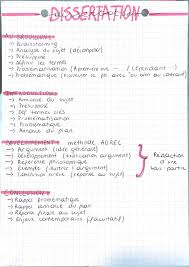 DISSERTATION
AU BROUILLON
→ Brainstorming
→ Analyse du sujet (décomposer)
→ Présupposé
→ Définir les termes
→ Problématisation (Apremièrevue ... / Cependant ...)
→ Problématique (trouver le pb avec "ou bien au contraire")
INTRODUCTION
→ Annonce du sujet
→ Présupposé
→ Def termes clés
→ Problématisation
→ Problématique
→ Annonce du plan
DEVELOPPEMENT méthode ADREL
→ Argument (idée générale)
→ Développement (explication argument)
→ Référence philosophique
→ Exemple (illustrer l'argument)
→ Lien (réponse au sujet)
Rédaction
d'une
sous partie
CONCLUSION
→ Rappel problématique
→ Rappel sommaire du plan
→ Réponse finale au sujet
→ Enjeux contemporains (facultatif)